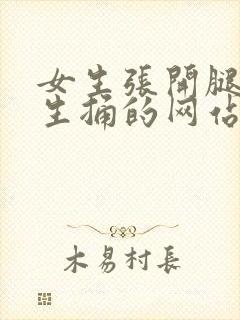 女生張開腿
生捅的网佔
木易村長